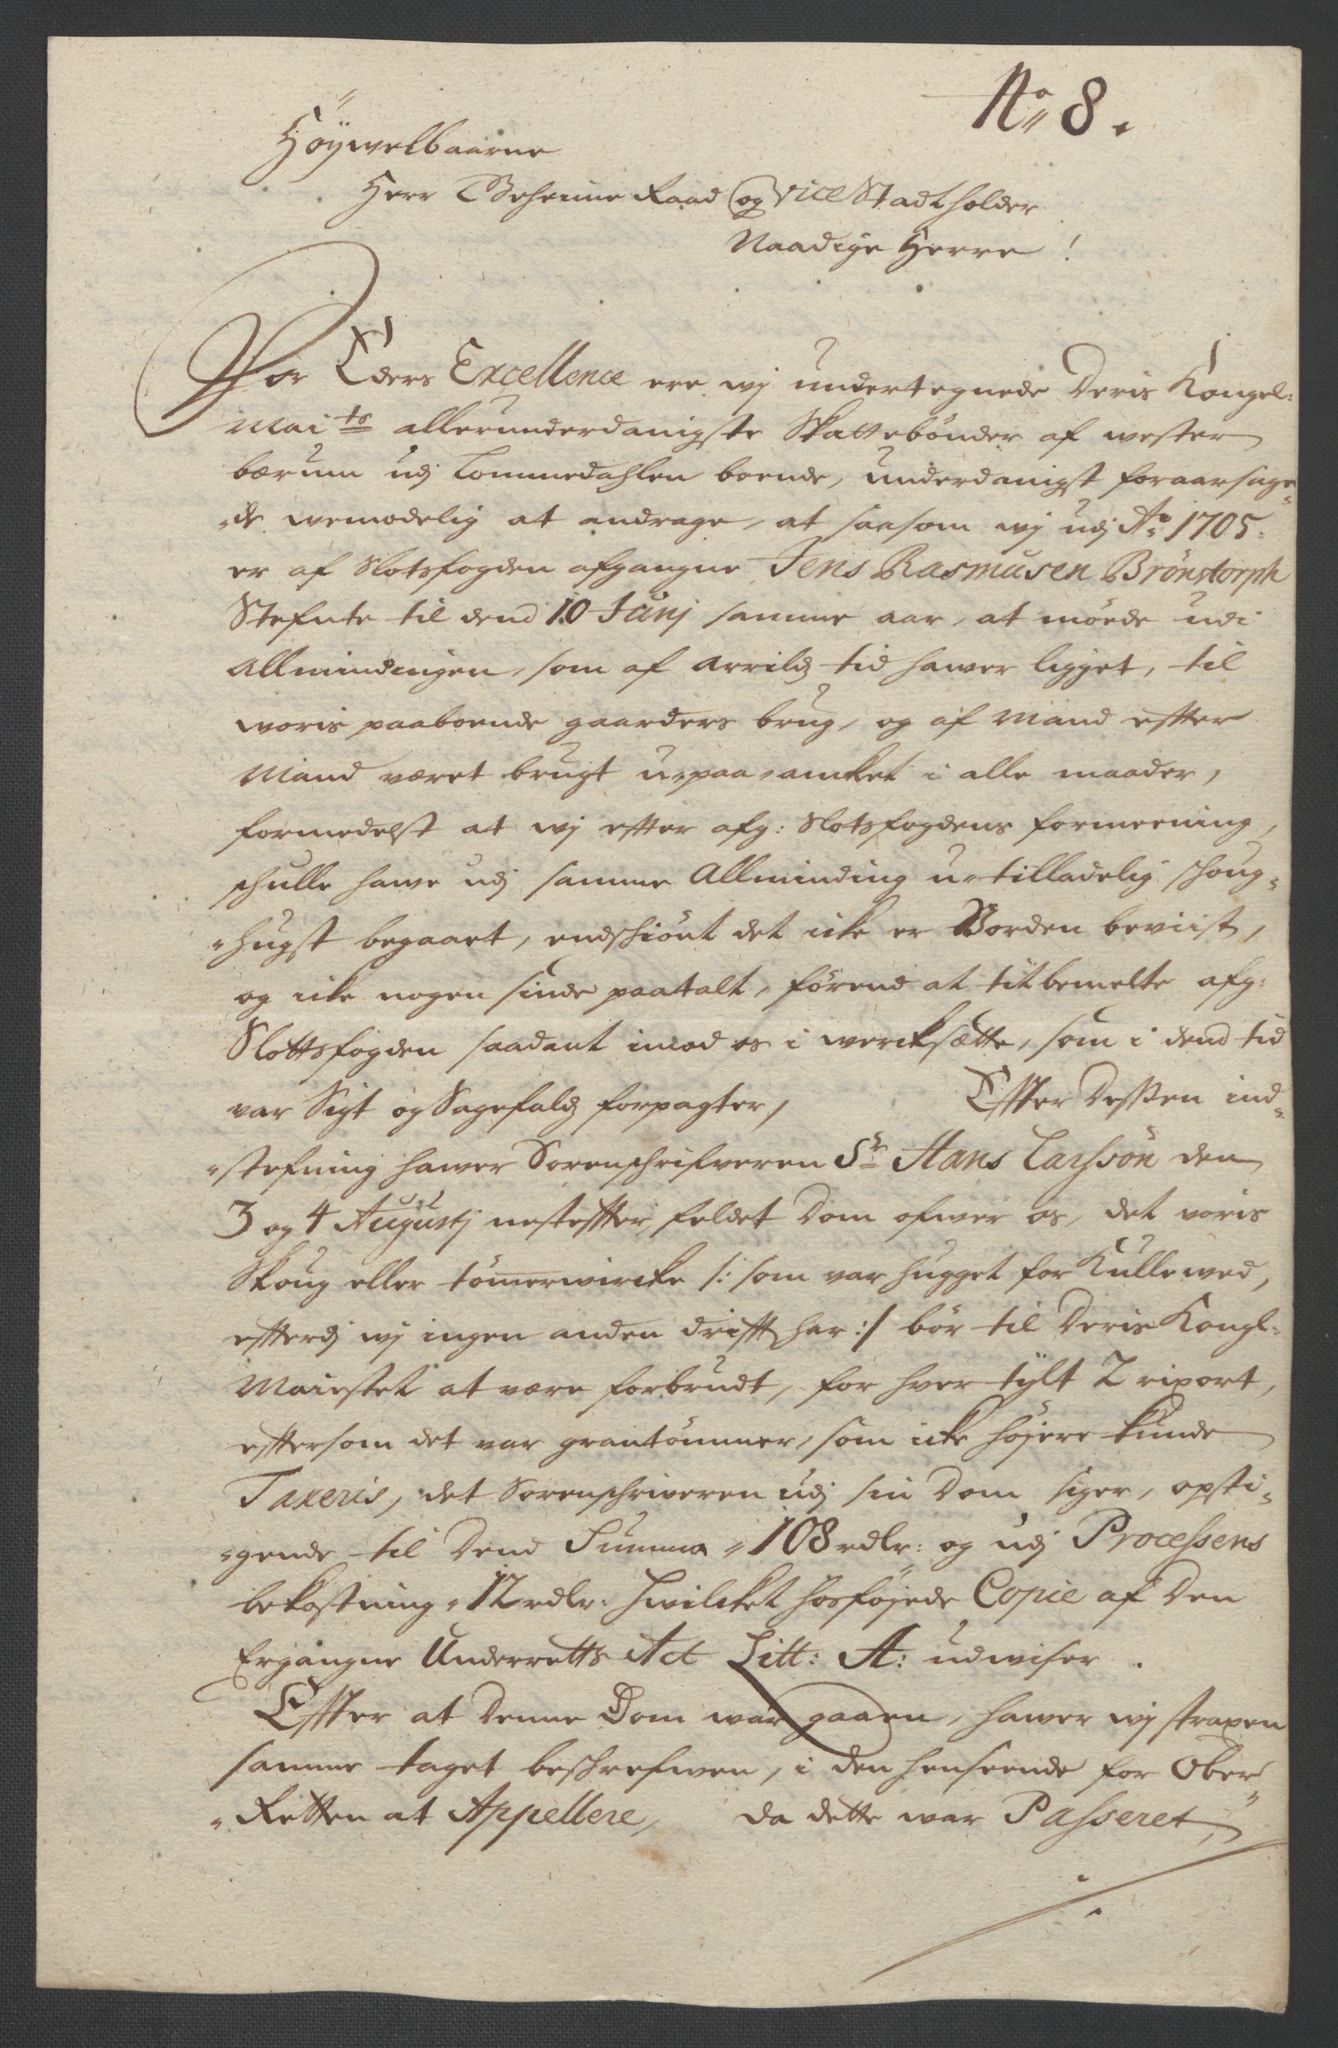 No 8.
Höÿwelbaarne
Herr Geheime Raad og vice Stadtholder
Naadige Herre!
For Eders Excellence ere wj undertegnede Deris Kongel:
Maitz allerunderdanigste Skattebönder af wester
bærum udj Lommedahlen boende, underdanigst foraarsage-
-de wemodelig at andrage, at saasom wj udj Ao 1705.
er af Slotsfogden afgangne Jens Rasmusen Brönstorph
Stefnte til dend 10 Junj samme aar, at möede udi
Allmindingen, som af Arrilds tid hawer ligget, til
woris paaboende gaarders brug, og af Mand effter
Mand været brugt u-paa-anket i alle maader,
formedelst at wj effter afg: Slotsfogdens formeening,
schulle hawe udj samme Allminding u-tilladelig schoug-
-hugst begaaet, endschiönt det icke er Worden beviist,
og icke nogen sinde paatalt, förend at titbemelte afg:
Slottsfogden saadant imod os i wercksætte, som i dend tid
var Sigt og Sagefalds forpagter, Effter Dessen ind-
-stefning hawer Sorenschrifveren Sr Hans Larssön den
3 og 4 Augustj nesteffter, feldet Dom ofwer os, det voris
Skoug eller tömerwircke /: som var hugget for Kullewed,
efferdj wj ingen anden drifft har :/ bör til Deris Kongl-
Maiestet at være forbrudt, for hver tylt 2 rixort,
effersom det var grantömmer, som icke höjere kunde
Taxeris, det Sorenschriveren udj sin Dom siger, opsti-
-gende til Dend Summa -108 rdlr: og udj Processens
bekostning -12 rdlr: Hwilcket hosföjede Copie af Den
Ergangne Underretts Act Litt: A: udwiser.
Effter at Denne Dom war gaaen, hawer wj straxen
samme taget beschrefwen, i den henseende for Ober-
-Retten at Appellere, da dette war Passeret,